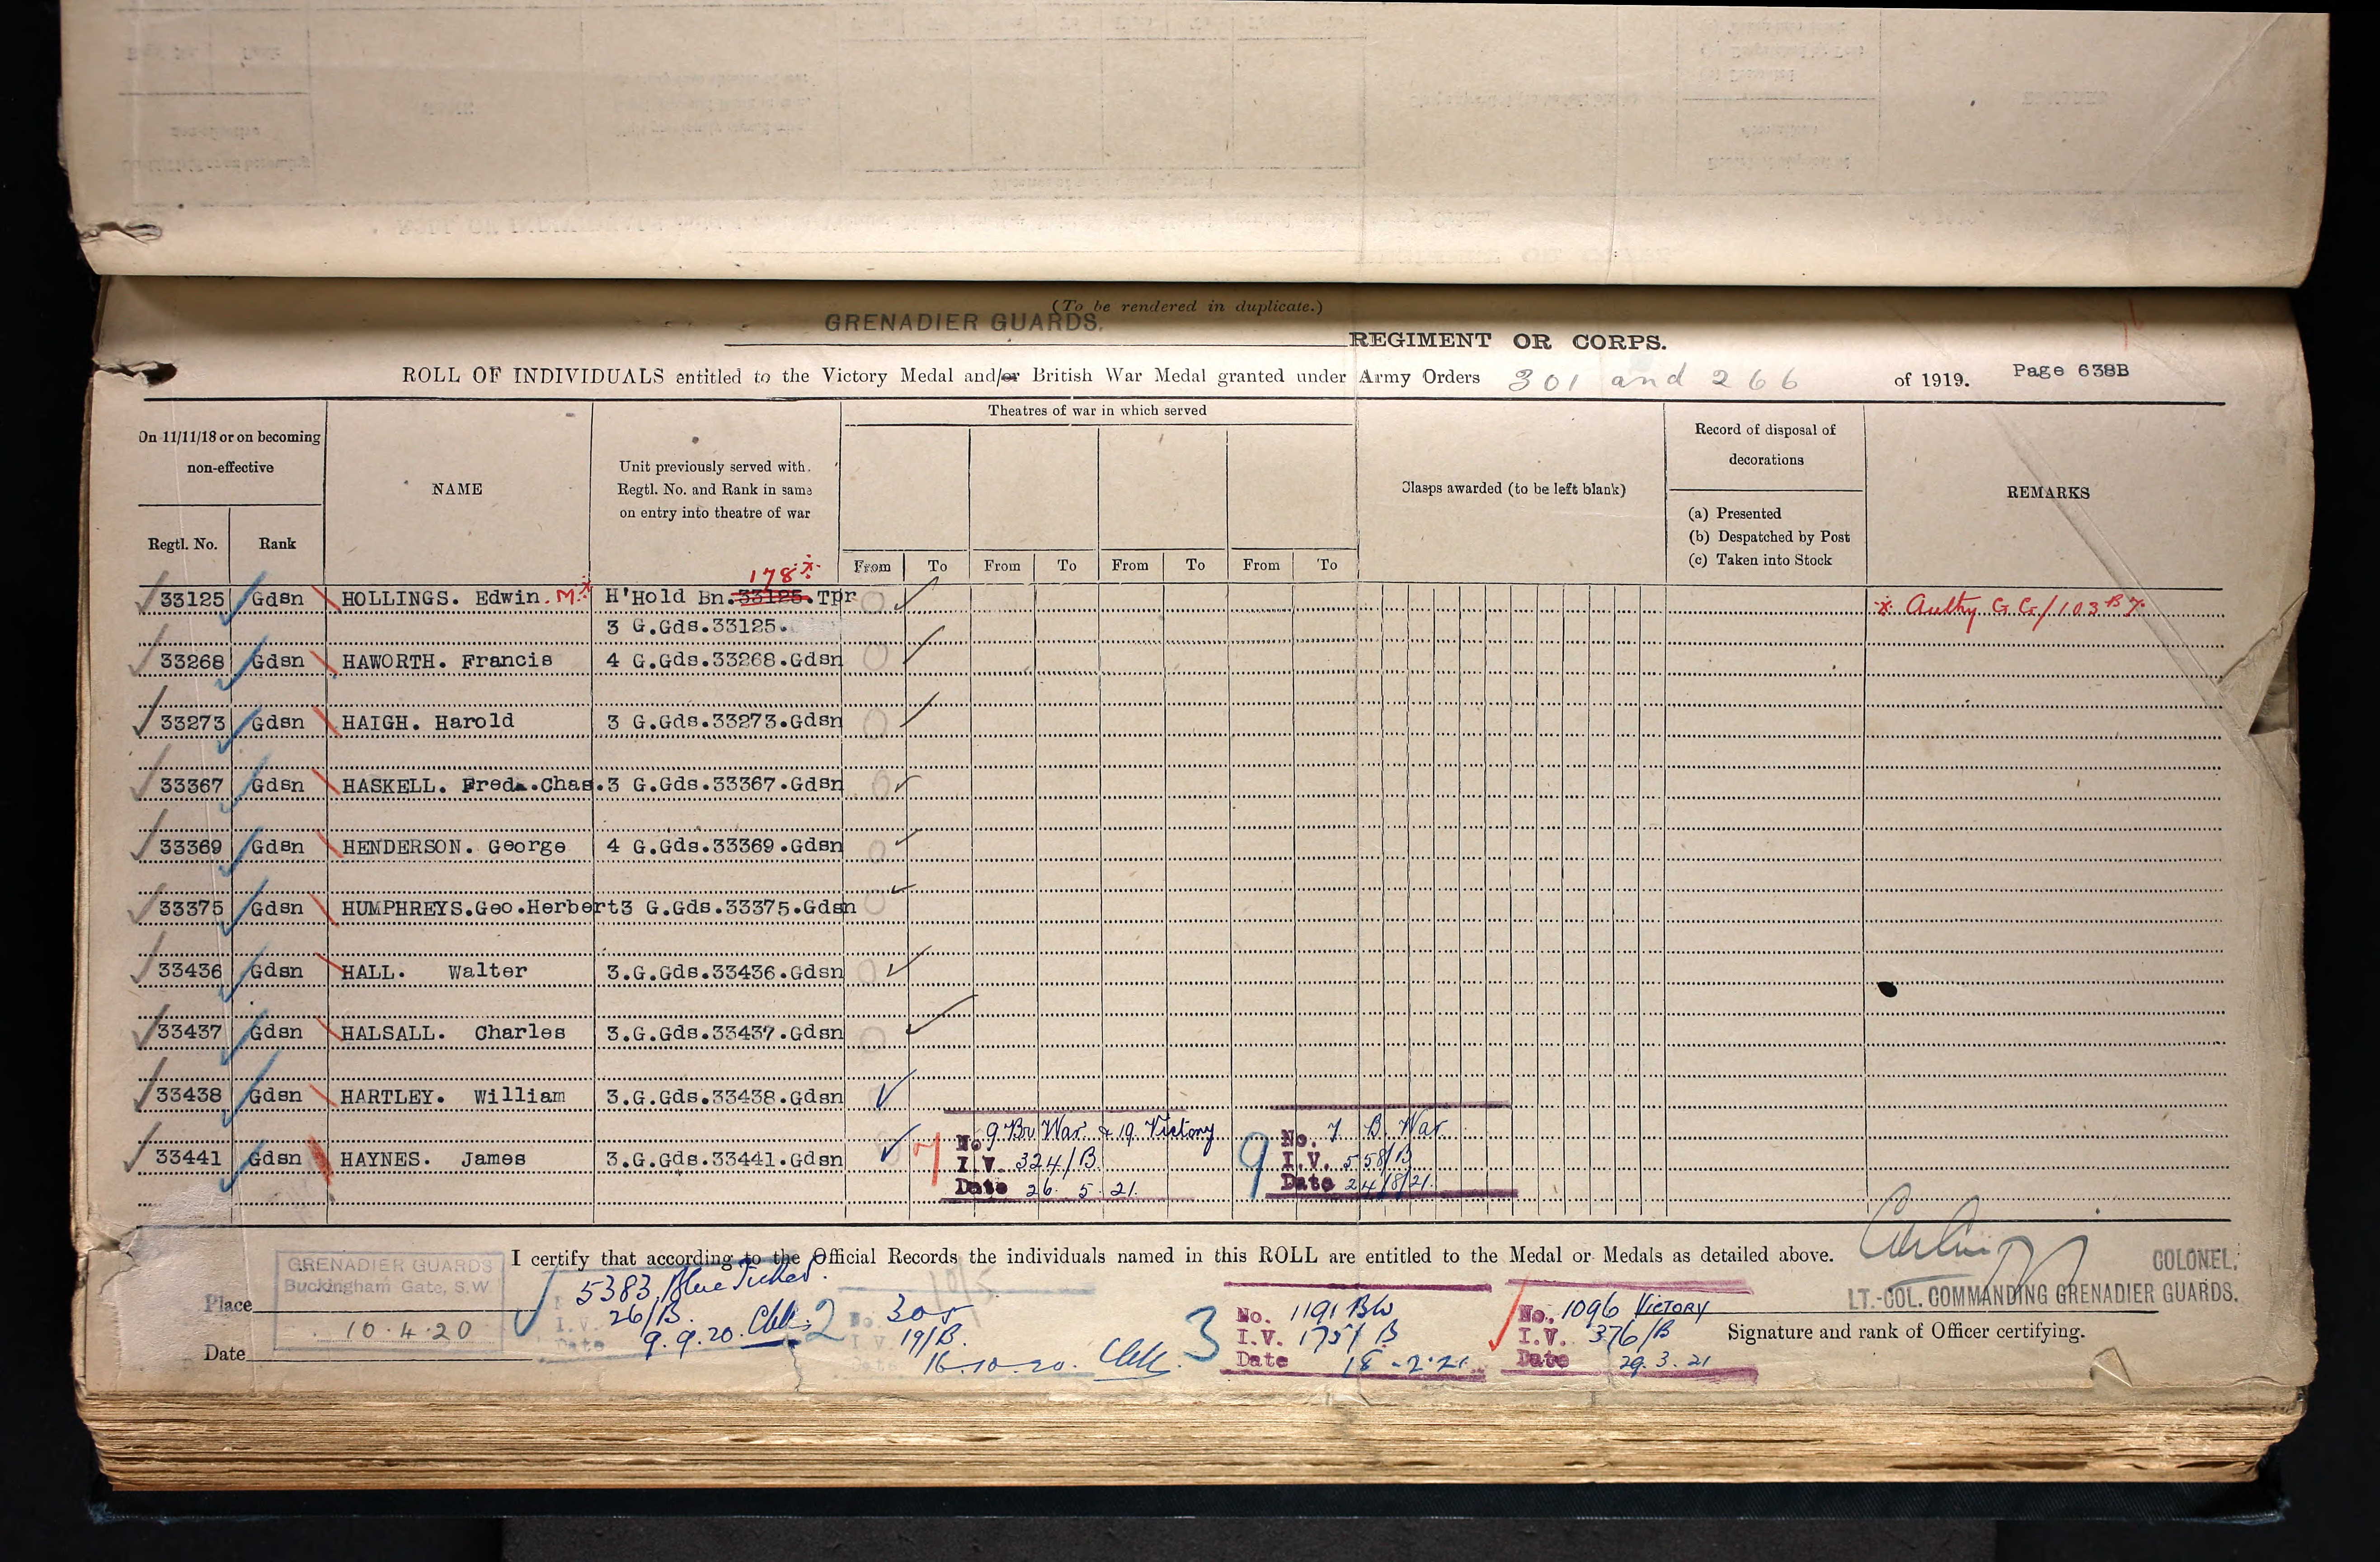 (To be rendered in duplicate.)
GRENADIER GUARDS. REGIMENT OR CORPS.
ROLL OF INDIVIDUALS entitled to the Victory Medal and/or British War Medal granted under Army Orders 301 and 266 of 1919. Page 638B
On 11/11/18 or on becoming non-effective
Regtl. No.
Rank
NAME
Unit previously served with. Regtl. No. and Rank in same on entry into theatre of war
Theatres of war in which served
From To From To From To From To
Clasps awarded (to be left blank)
Record of disposal of decorations
(a) Presented
(b) Despatched by Post
(c) Taken into Stock
REMARKS
178*
33125 Gdsn HOLLINGS. Edwin. M.* H'Hold Bn.33125.Tpr * Authy G G/103 B7.
3 G.Gds.33125.
33268 Gdsn HAWORTH. Francis 4 G.Gds.33268.Gdsn
33273 Gdsn HAIGH. Harold 3 G.Gds.33273.Gdsn
33367 Gdsn HASKELL. Fredk.Chas. 3 G.Gds.33367.Gdsn
33369 Gdsn HENDERSON. George 4 G.Gds.33369.Gdsn
33375 Gdsn HUMPHREYS.Geo.Herbert 3 G.Gds.33375.Gdsn
33436 Gdsn HALL. Walter 3.G.Gds.33436.Gdsn
33437 Gdsn HALSALL. Charles 3.G.Gds.33437.Gdsn
33438 Gdsn HARTLEY. William 3.G.Gds.33438.Gdsn
33441 Gdsn HAYNES. James 3.G.Gds.33441.Gdsn
No 9 Br War & 19 Victory
I.V. 324/B
Date 26 5 21.
9
No. 7 B War
I.V. 558/B
Date 24/8/21.
I certify that according to the Official Records the individuals named in this ROLL are entitled to the Medal or Medals as detailed above.
GRENADIER GUARDS
Buckingham Gate, S.W.
Place
10.4.20
Date
5383
26/B.
I.V.
Date 9.9.20.
2
No. 305
I V 19/B.
16-10-20.
3
No. 1191 BW
I.V. 175/B
Date 18-2-21
No. 1096 VICTORY
I.V. 376/B
Date 29.3.21
COLONEL.
LT.-COL. COMMANDING GRENADIER GUARDS.
Signature and rank of Officer certifying.